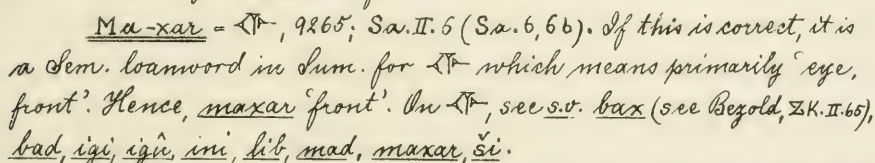 Ma-xar = 𒅆, 9265; Sa.II.6 (Sa.6,6b). If this is correct, it is
a Sem. loanword in Sum. for 𒅆 which means primarily ‘eye,
front’. Hence, maxar ‘front’. On 𒅆, see s.v. bax (see Bezold, ZK.II.65),
bad, igi, igû, ini, lib, mad, maxar, ši.